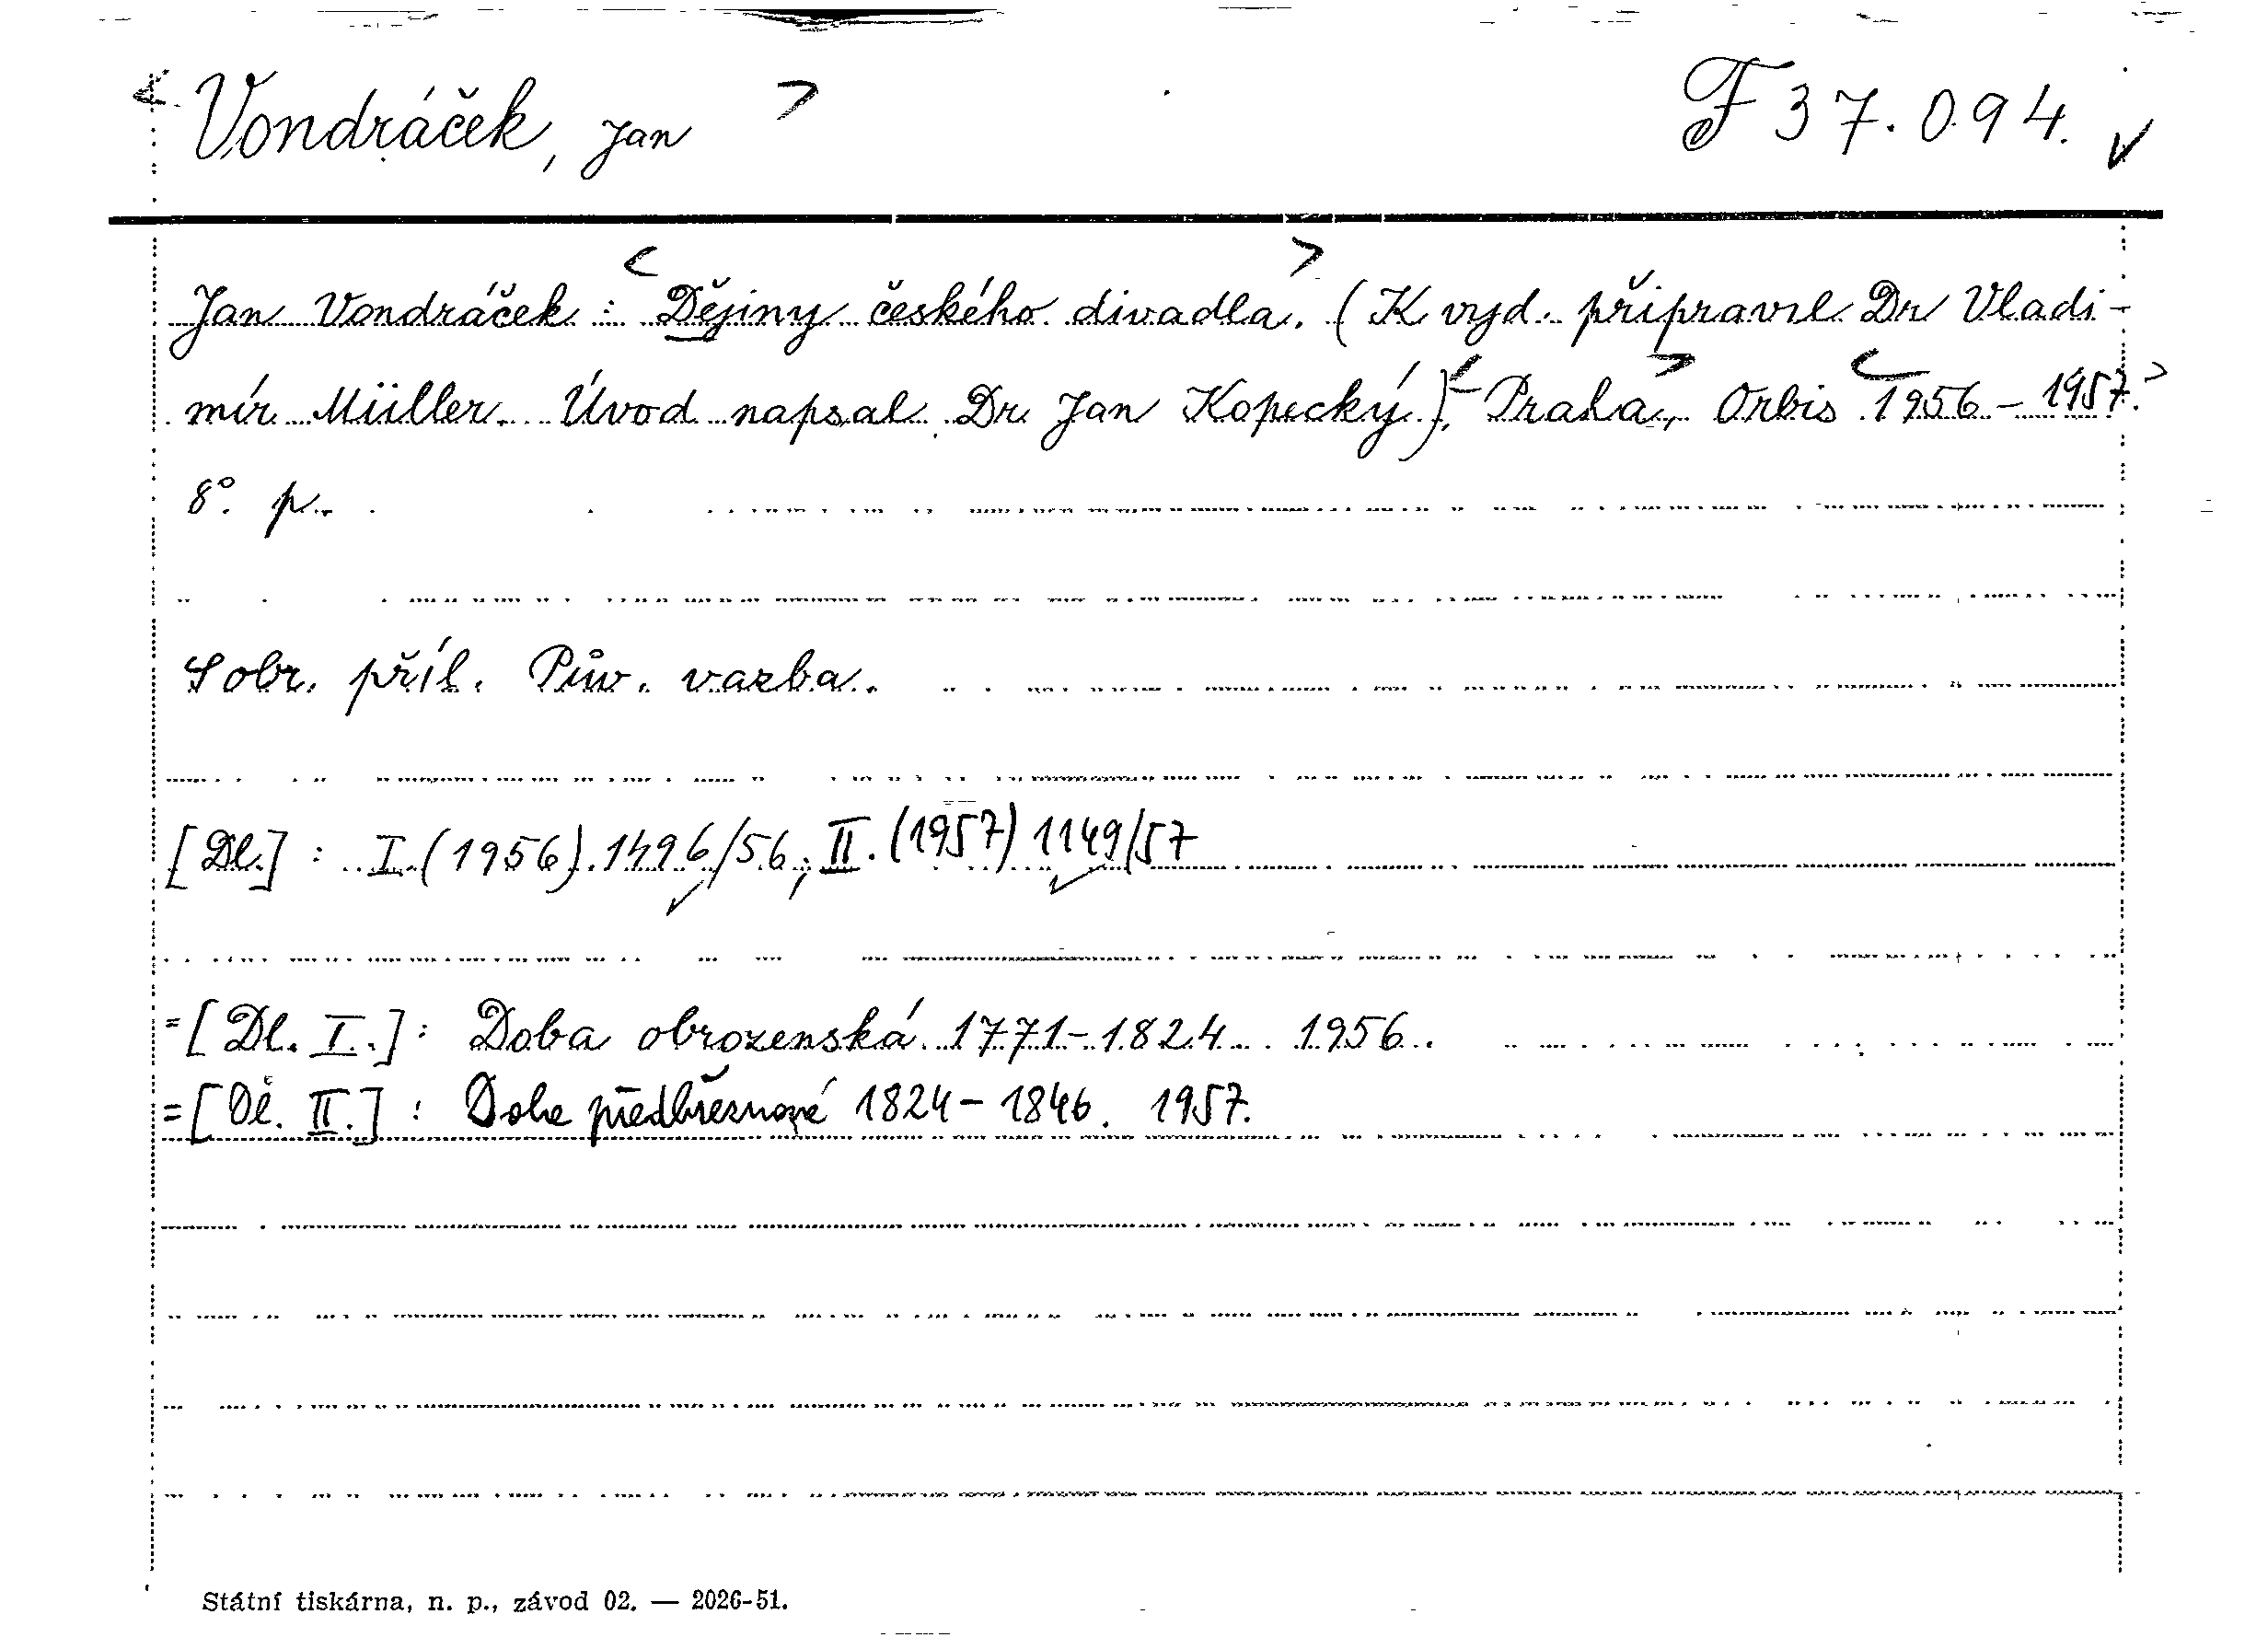 < Vondráček, Jan > F 37.094. ✓
Jan Vondráček : <Dějiny českého divadla>. (K vyd. připravil Dr Vladi-
mír Müller. Úvod napsal Dr Jan Kopecký). <- Praha>, Orbis <1956 - 1957.>
8°. p.
S obr. příl. Pův. vazba.
[Dl.] : I. (1956) 1496/56; II. (1957) 1149/57
=[Dl. I.] : Doba obrozenská 1771-1824. 1956.
=[Dl. II.] : Doba předbřeznová 1824-1846. 1957.
Státní tiskárna, n. p., závod 02. — 2026-51.